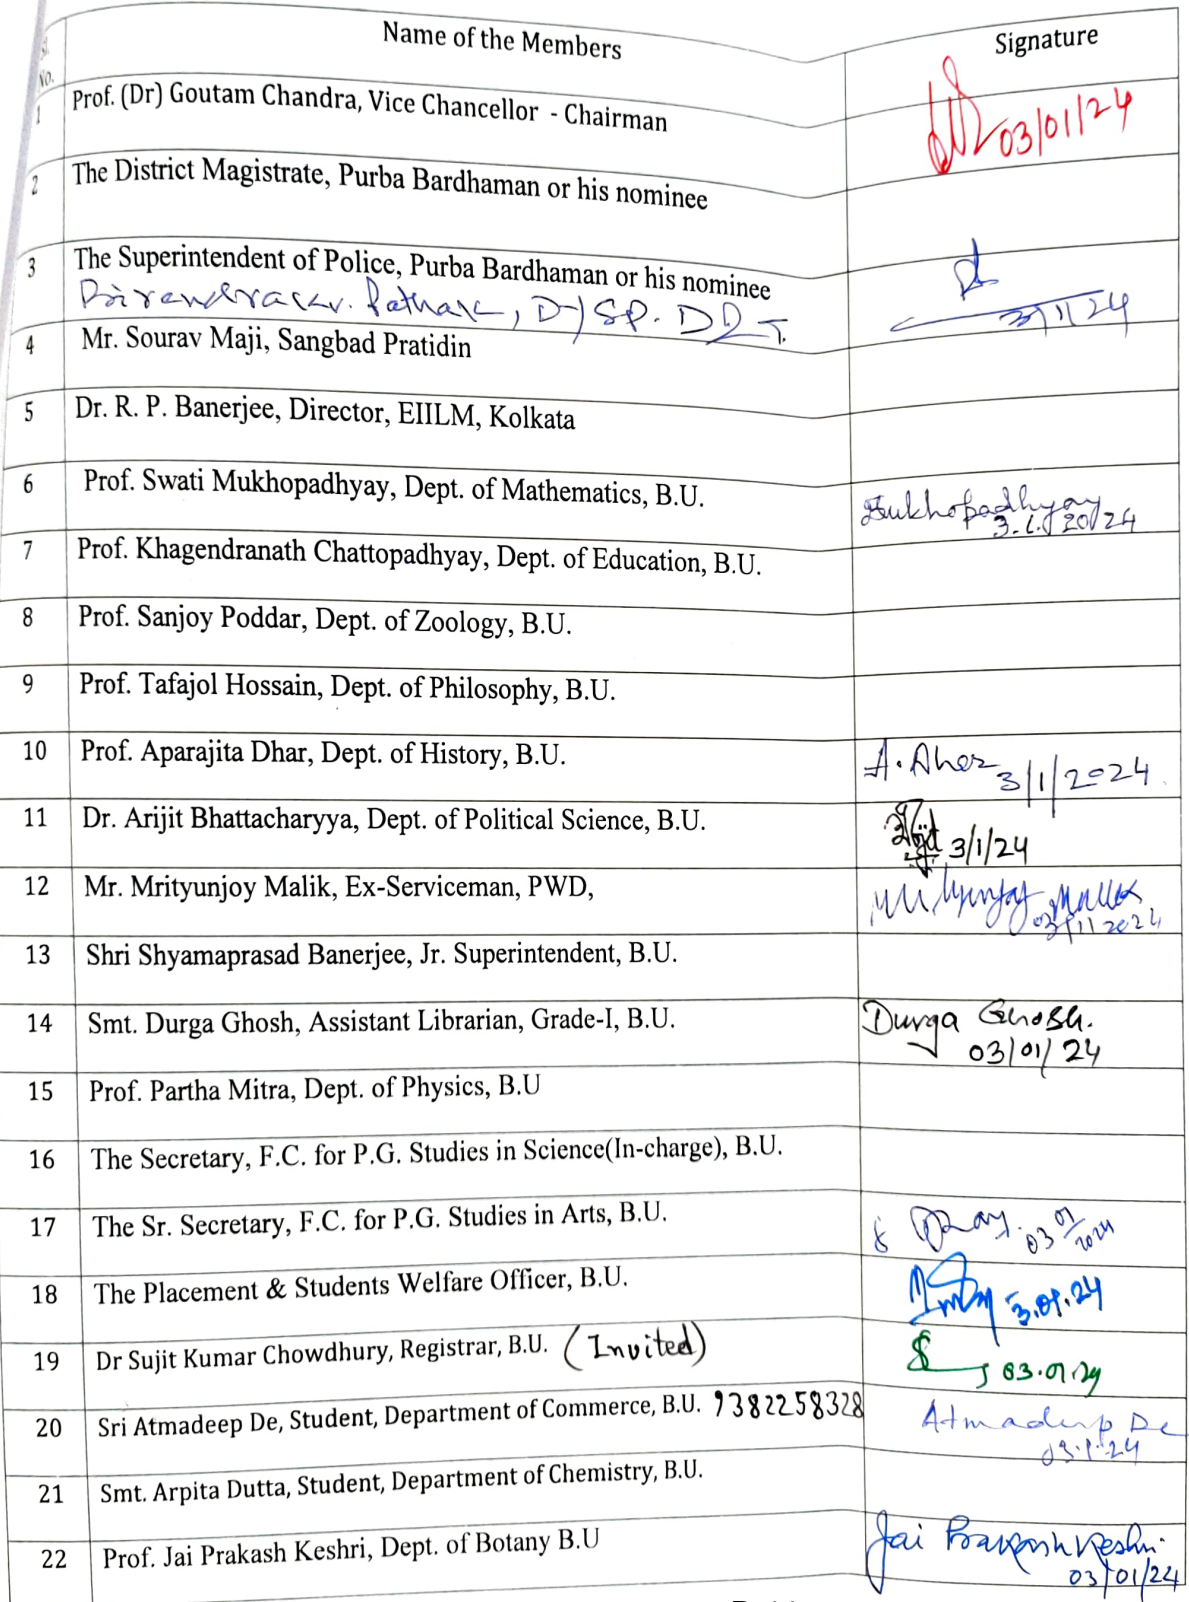 Sl. No. Name of the Members Signature
1 Prof. (Dr) Goutam Chandra, Vice Chancellor - Chairman 03/01/24
2 The District Magistrate, Purba Bardhaman or his nominee
3 The Superintendent of Police, Purba Bardhaman or his nominee
Pathak, DySP. 3/1/24
4 Mr. Sourav Maji, Sangbad Pratidin
5 Dr. R. P. Banerjee, Director, EIILM, Kolkata
6 Prof. Swati Mukhopadhyay, Dept. of Mathematics, B.U. SMukhopadhyay
3.1.2024
7 Prof. Khagendranath Chattopadhyay, Dept. of Education, B.U.
8 Prof. Sanjoy Poddar, Dept. of Zoology, B.U.
9 Prof. Tafajol Hossain, Dept. of Philosophy, B.U.
10 Prof. Aparajita Dhar, Dept. of History, B.U. A. Dhar 3/1/2024
11 Dr. Arijit Bhattacharyya, Dept. of Political Science, B.U. 3/1/24
12 Mr. Mrityunjoy Malik, Ex-Serviceman, PWD, Mrityunjoy Malik
03/1/2024
13 Shri Shyamaprasad Banerjee, Jr. Superintendent, B.U.
14 Smt. Durga Ghosh, Assistant Librarian, Grade-I, B.U. Durga Ghosh.
03/01/24
15 Prof. Partha Mitra, Dept. of Physics, B.U
16 The Secretary, F.C. for P.G. Studies in Science(In-charge), B.U.
17 The Sr. Secretary, F.C. for P.G. Studies in Arts, B.U. 03/01/2024
18 The Placement & Students Welfare Officer, B.U. 3.01.24
19 Dr Sujit Kumar Chowdhury, Registrar, B.U. (Invited) 03.01.24
20 Sri Atmadeep De, Student, Department of Commerce, B.U. 9382258328 Atmadeep De
03.1.24
21 Smt. Arpita Dutta, Student, Department of Chemistry, B.U.
22 Prof. Jai Prakash Keshri, Dept. of Botany B.U Jai Prakash Keshri
03/01/24